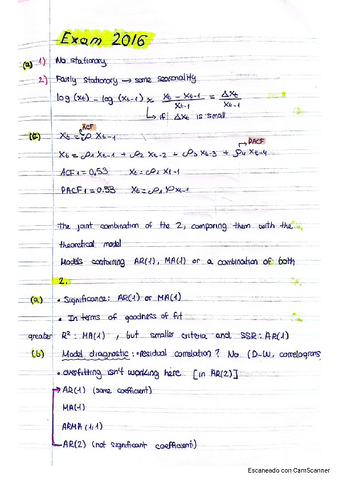 Exam 2016
(a) 1) No stationary
2) Fairly stationary → some seasonality
log (xt) - log (xt-1) ≈ xt - xt-1 / xt-1 = Δxt / xt-1
↳ if Δxt is small
ACF
(c) Xt = Xt-1
PACF
Xt = Xt-1 + Xt-2 + Xt-3 + Xt-4
ACF1 = 0,53 Xt = Xt-1
PACF1 = 0.53 Xt = Xt-1
The joint combination of the 2, comparing them with the
theoretical model
Models containing AR(1), MA(1) or a combination of both
2.
(a) • Significance: AR(1) or MA(1)
• In terms of goodness of fit
greater R²: MA(1), but smaller criteria and SSR: AR(1)
(b) Model diagnostic: • residual correlation? No (D-W, correlograms
• overfitting isn't working here [in AR(2)]
AR(1) (same coefficient)
MA(1)
ARMA (1,1)
AR(2) (not significant coefficient)
Escaneado con CamScanner